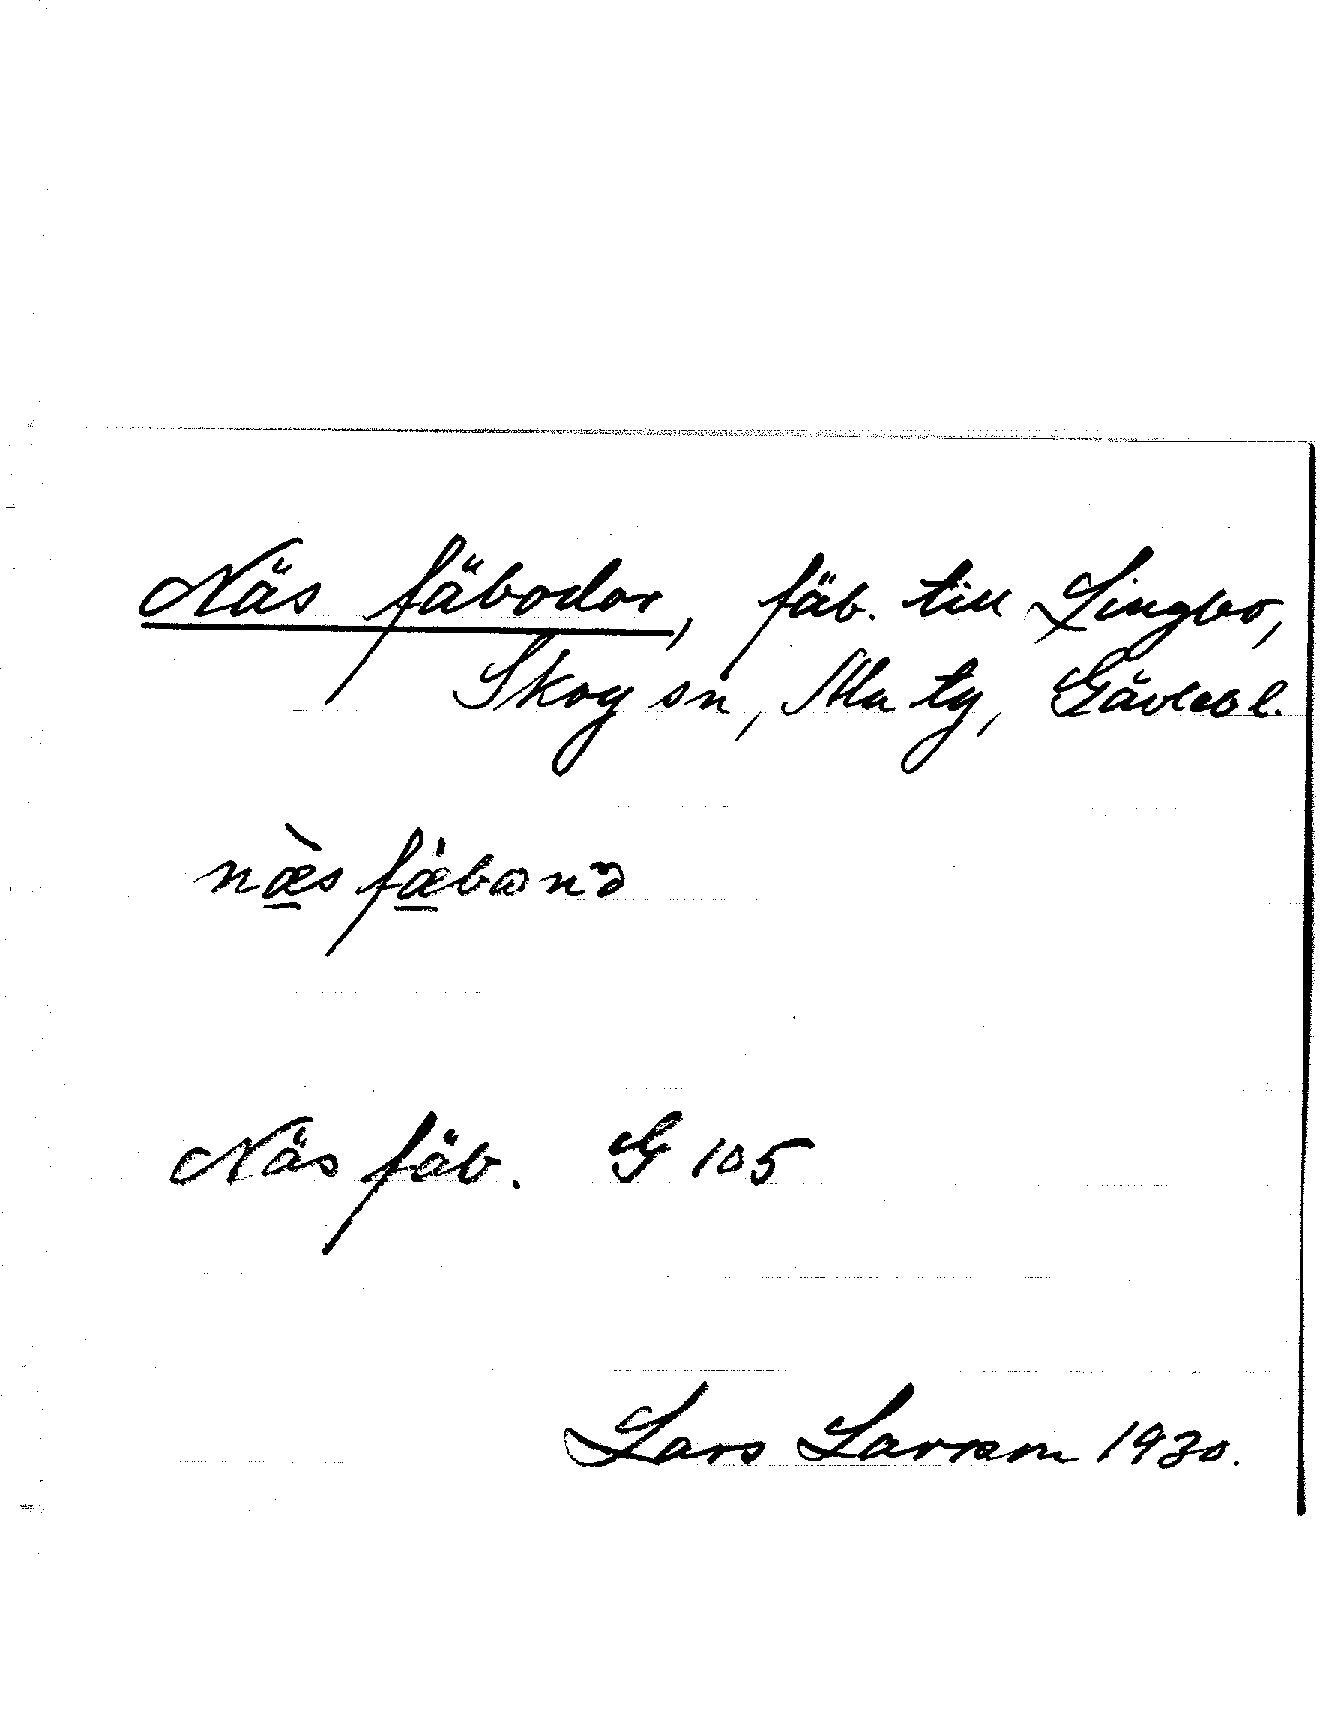 Näs fäbodar, fäb. till Lingbo,
Skog sn, Ala tg, Gävlebl.
næ̀s fæ̀bωnə
Näs fäb. G 105
Lars Larsson 1930.